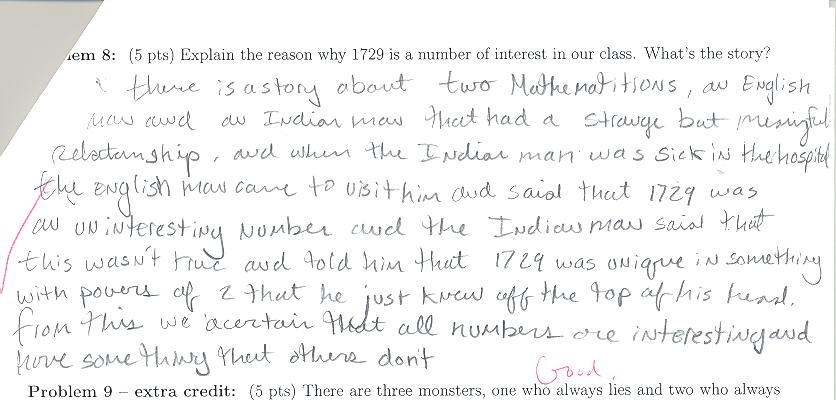 em 8: (5 pts) Explain the reason why 1729 is a number of interest in our class. What's the story?
there is a story about two Mathematitions, an English
man and an Indian man that had a strange but meaningful
Relationship, and when the Indian man was sick in the hospital
the English man came to visit him and said that 1729 was
an uninteresting number and the Indian man said that
this wasn't true and told him that 1729 was unique in something
with powers of 2 that he just knew off the top of his head.
from this we acertain that all numbers are interesting and
have something that others don't
Good.
Problem 9 – extra credit: (5 pts) There are three monsters, one who always lies and two who always